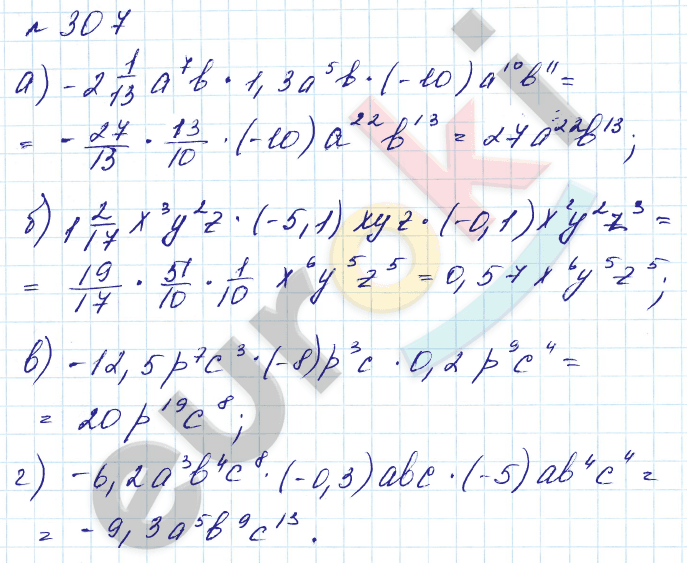 № 307
а) -2 1/13 a⁷b · 1,3a⁵b · (-10)a¹⁰b¹¹ =
= - 27/13 · 13/10 · (-10) a²²b¹³ = 27a²²b¹³;
б) 1 2/17 x³y²z · (-5,1) xyz · (-0,1) x²y²z³ =
= 19/17 · 51/10 · 1/10 x⁶y⁵z⁵ = 0,57x⁶y⁵z⁵;
в) -12,5p⁷c³ · (-8)p³c · 0,2 p⁹c⁴ =
= 20p¹⁹c⁸;
г) -6,2a³b⁴c⁸ · (-0,3)abc · (-5)ab⁴c⁴ =
= -9,3a⁵b⁹c¹³.
euroki